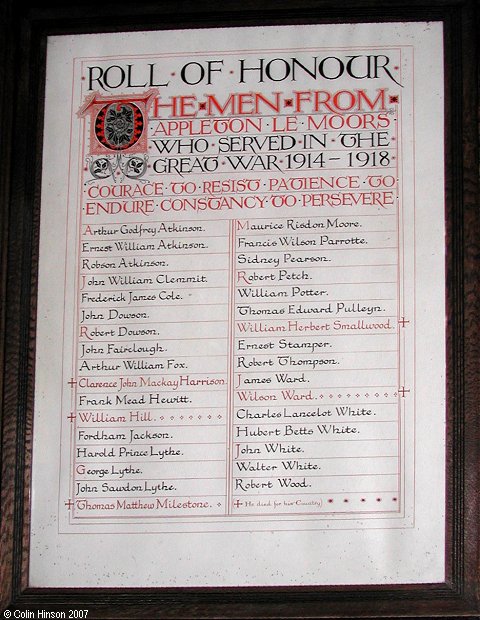 ROLL · OF · HONOUR
THE · MEN · FROM
APPLETON · LE · MOORS
WHO · SERVED · IN · THE
GREAT · WAR · 1914 – 1918
· COURAGE · TO · RESIST · PATIENCE · TO
· ENDURE · CONSTANCY · TO · PERSEVERE
Arthur Godfrey Atkinson.
Ernest William Atkinson.
Robson Atkinson.
John William Clemmit.
Frederick James Cole.
John Dowson.
Robert Dowson.
John Fairclough.
Arthur William Fox.
+ Clarence John Mackay Harrison.
Frank Mead Hewitt.
+ William Hill.
Fordham Jackson.
Harold Prince Lythe.
George Lythe.
John Sawdon Lythe.
+ Thomas Matthew Milestone.
Maurice Risdon Moore.
Francis Wilson Parrotte.
Sidney Pearson.
Robert Petch.
William Potter.
Thomas Edward Pulleyn.
William Herbert Smallwood. +
Ernest Stamper.
Robert Thompson.
James Ward.
Wilson Ward. +
Charles Lancelot White.
Hubert Betts White.
John White.
Walter White.
Robert Wood.
+ He died for his Country)
© Colin Hinson 2007